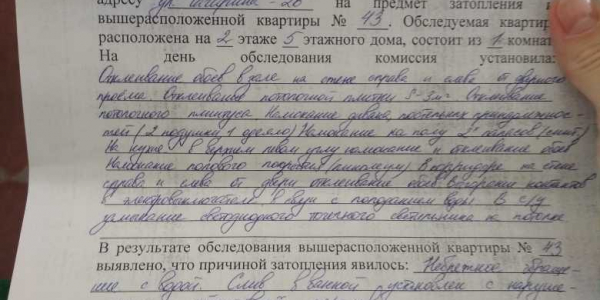 адресу ул. на предмет затопления и
вышерасположенной квартиры № 43. Обследуемая квартир
расположена на 2 этаже 5 этажного дома, состоит из 1 комнат
На день обследования комиссия установила:
Отклеивание обоев в зале на стене справа и слева от дверного
проёма. Отклеивание потолочной плитки S-3м² Отклеивание
потолочного плинтуса. Намокание дивана, постельных принадлежнос-
тей (2 подушки, 1 одеяло) Намокание на полу 2х
На кухне в верхнем левом углу намокание и отклеивание обоев
Намокание полового покрытия (линолеум) В коридоре на стене
справа и слева от двери отклеивание обоев. Возгорание контактов
в электровыключателе в связи с попаданием воды. В с/у
намокание светодиодного точечного светильника на потолке
В результате обследования вышерасположенной квартиры № 43
выявлено, что причиной затопления явилось: Небрежное обраще-
ние с водой. Слив в ванной установлен с наруше-